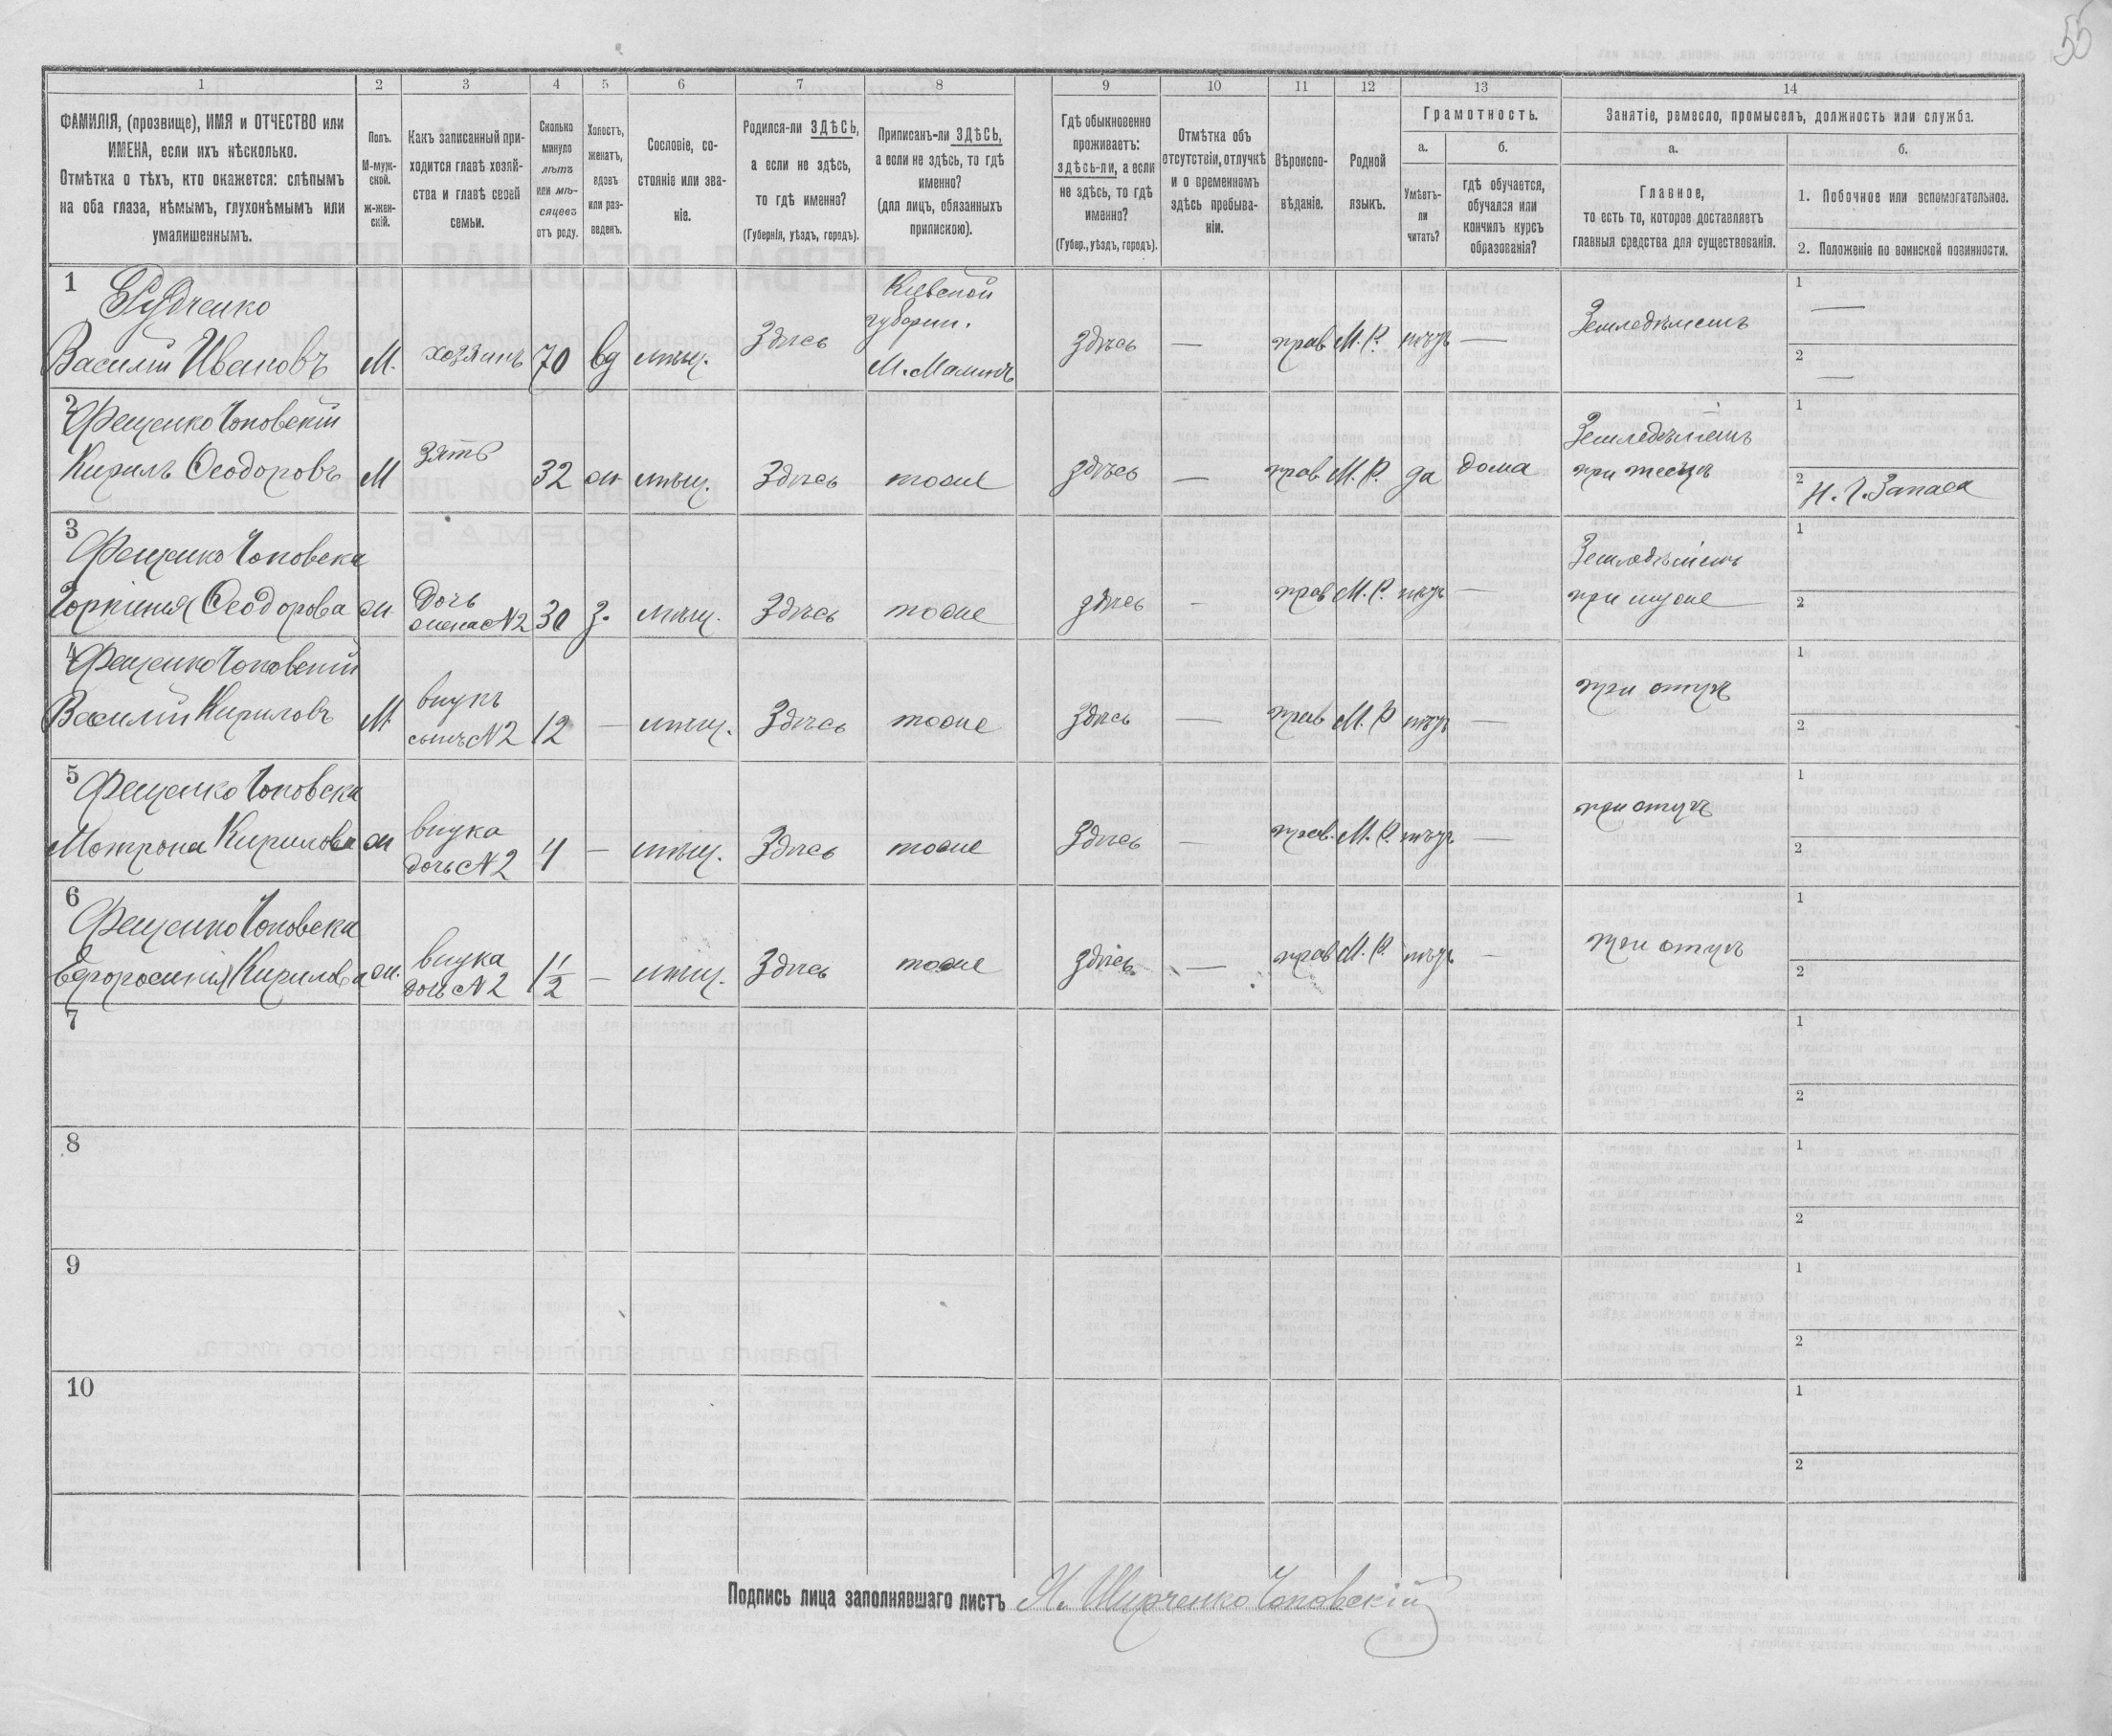 55
1
2
3
4
5
6
7
8
9
10
11
12
13
14
ФАМИЛІЯ, (прозвище), ИМЯ и ОТЧЕСТВО или
ИМЕНА, если ихъ нѣсколько.
Отмѣтка о тѣхъ, кто окажется: слѣпымъ
на оба глаза, нѣмымъ, глухонѣмымъ или
умалишеннымъ.
Полъ.
М-муж-
ской.
ж-жен-
скій.
Какъ записанный при-
ходится главѣ хозяй-
ства и главѣ своей
семьи.
Сколько
минуло
лѣтъ
или мѣ-
сяцевъ
отъ роду.
Холостъ,
женатъ,
вдовъ
или раз-
веденъ.
Сословіе, со-
стояніе или зва-
ніе.
Родился-ли ЗДѢСЬ,
а если не здѣсь,
то гдѣ именно?
(Губернія, уѣздъ, городъ).
Приписанъ-ли ЗДѢСЬ,
а если не здѣсь, то гдѣ
именно?
(для лицъ, обязанныхъ
припискою).
Гдѣ обыкновенно
проживаетъ:
здѣсь-ли, а если
не здѣсь, то гдѣ
именно?
(Губер., уѣздъ, городъ).
Отмѣтка объ
отсутствіи, отлучкѣ
и о временномъ
здѣсь пребыва-
ніи.
Вѣроиспо-
вѣданіе.
Родной
языкъ.
Грамотность.
а.
Умѣетъ-
ли
читать?
б.
гдѣ обучается,
обучался или
кончилъ курсъ
образованія?
Занятіе, ремесло, промыселъ, должность или служба.
а.
Главное,
то есть то, которое доставляетъ
главныя средства для существованія.
б.
1. Побочное или вспомогательное.
2. Положеніе по воинской повинности.
1
Василій Ивановъ М. хозяинъ 70 вд мѣщ. Здѣсь Кіевской
губерни.
М. Малинъ здѣсь — прав М. Р. нѣтъ — Земледѣлецъ 1 —
2 —
2
Фещенко Чоповскій
Кирилъ Ѳеодоровъ М зять 32 ж мѣщ. Здѣсь тоже здѣсь — прав М. Р. да дома Земледѣлецъ
при тесцѣ 1
2 Н. Ч. Запаса
3
Фещенко Чоповска
Ѳеодорова ж Дочь
жена №2 30 з. мѣщ. Здѣсь тоже здѣсь — прав М. Р. нѣтъ — Земледѣлецъ
при мужѣ 1
2
4
Фещенко Чоповскій
Василій Кириловъ М внукъ
сынъ №2 12 — мѣщ. Здѣсь тоже Здѣсь — прав М. Р нѣтъ — при отцѣ 1
2
5
Фещенко Чоповска
Мотрона Кирилова ж внука
дочь №2 4 — мѣщ. Здѣсь тоже Здѣсь — прав. М. Р. нѣтъ — при отцѣ 1
2
6
Фещенко Чоповска
Ефросинія Кирилова ж. внука
дочь №2 — мѣщ. Здѣсь тоже здѣсь — прав М. Р. нѣтъ — при отцѣ 1
2
7 1
2
8 1
2
9 1
2
10 1
2
Подпись лица заполнявшаго листъ Чоповскій